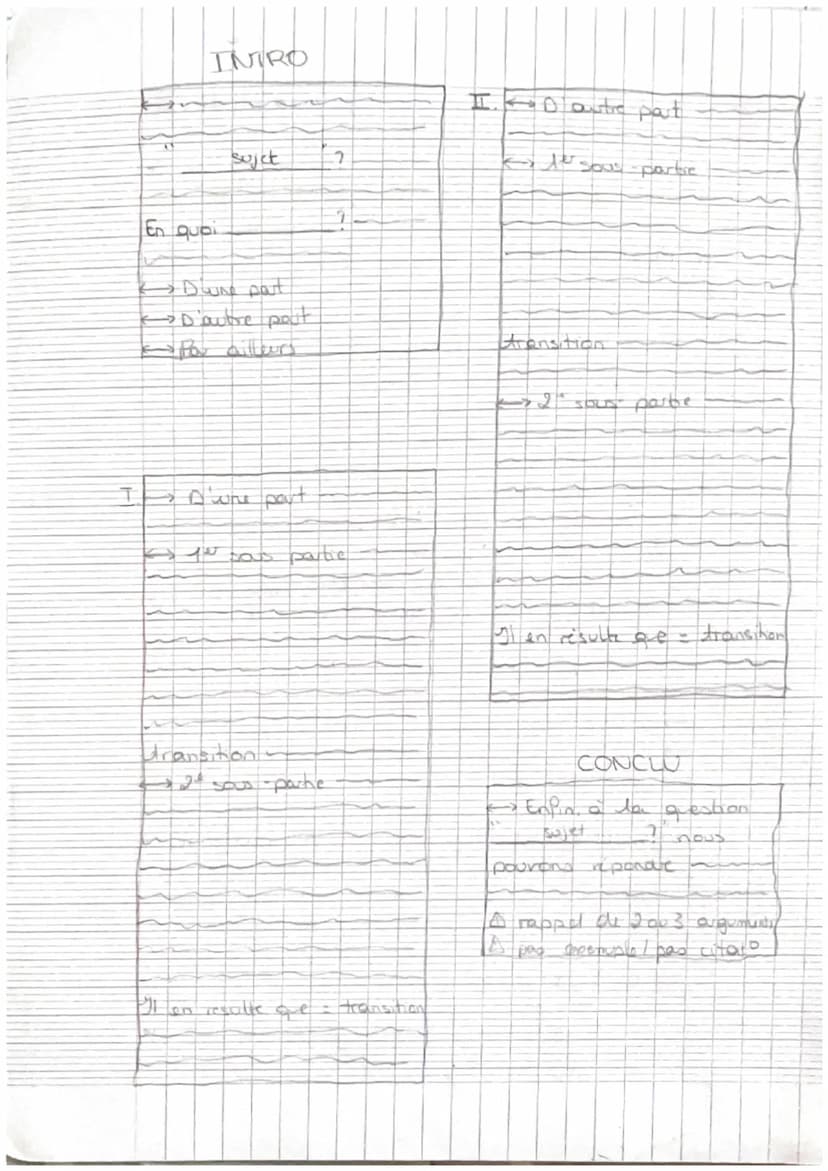 INTRO
"sujet" ?
En quoi ?
↔ D'une part
↔ D'autre part
↔ Par ailleurs
I. ↔ D'une part
↔ 1er sous partie
transition
↔ 2e sous-partie
Il en résulte que = transition
II. ↔ D'autre part
↔ 1er sous-partie
transition
↔ 2e sous-partie
Il en résulte que = transition
CONCLU
↔ Enfin, à la question
"sujet ?" nous
pouvons répondre
⚠ rappel de 2 ou 3 arguments
⚠ pas exemple / pas citat°